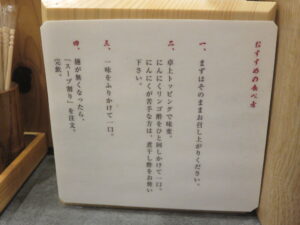 おすすめの食べ方
一、まずはそのままお召し上がりください。
二、卓上トッピングで味変。
にんにくリンゴ酢をひと回しかけて一口。
にんにくが苦手な方は、煮干し酢をお使い
下さい。
三、一味をふりかけて一口。
四、麺が無くなったら、
「スープ割り」を注文。
完飲。